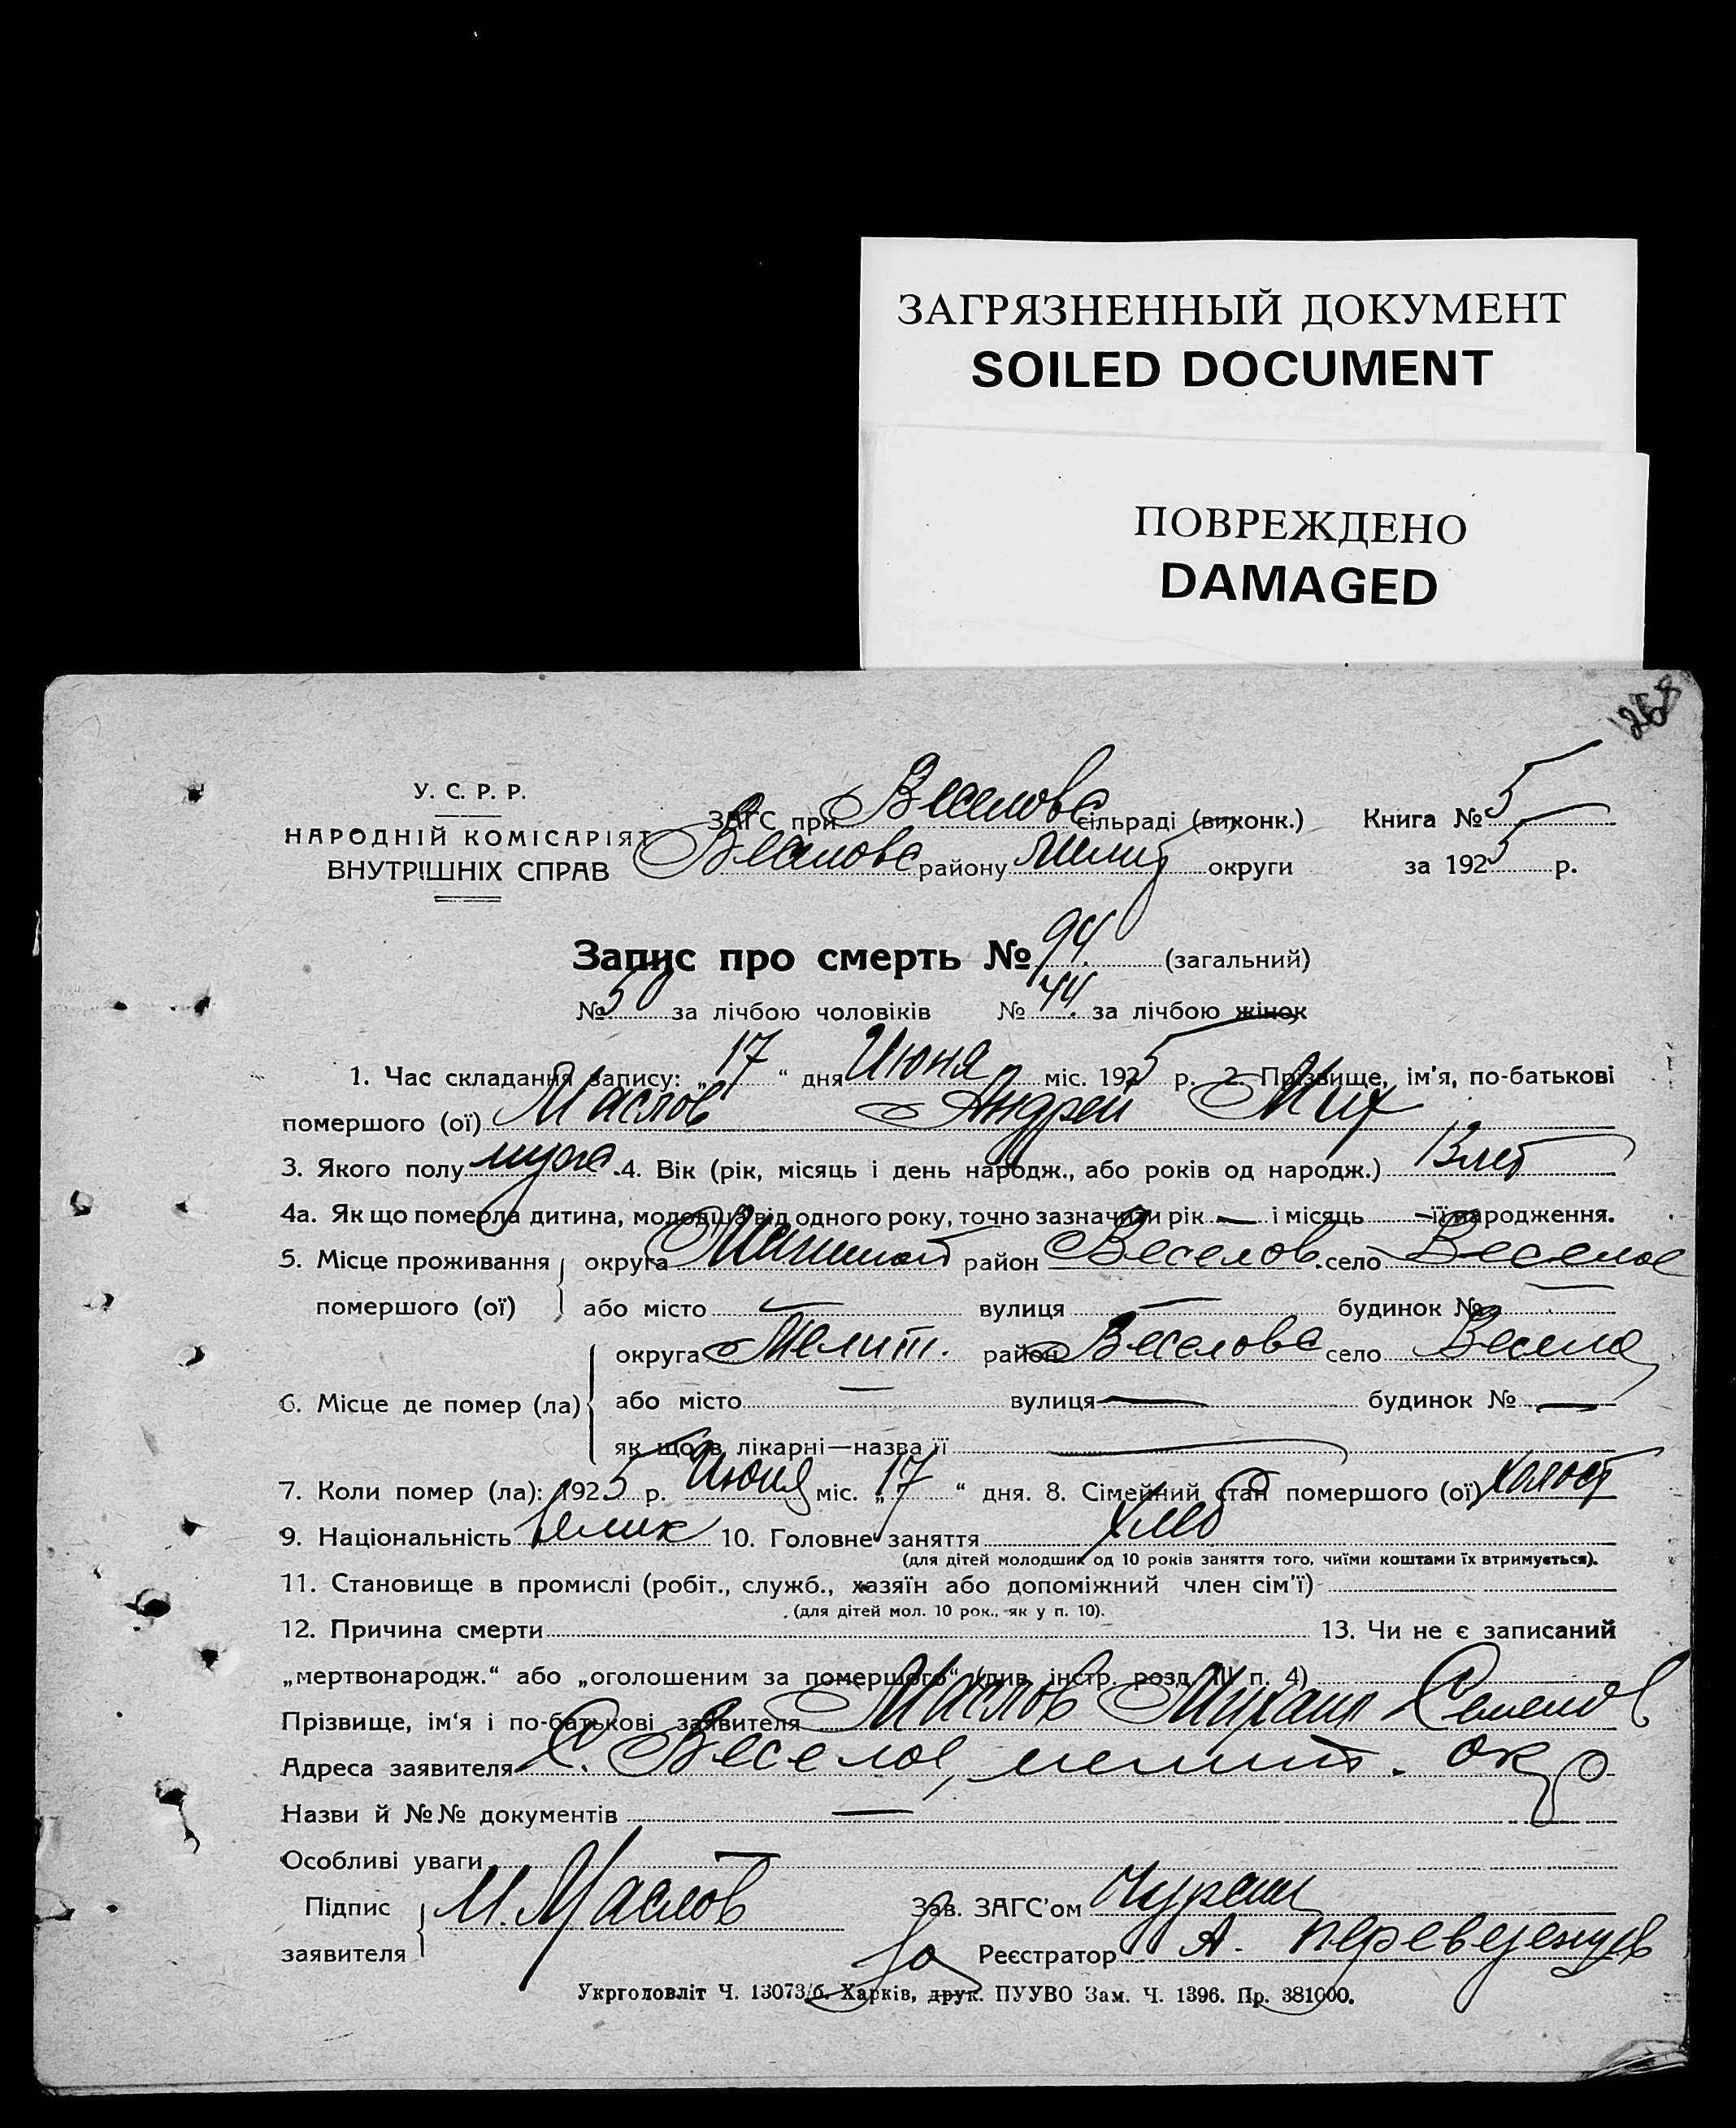 ЗАГРЯЗНЕННЫЙ ДОКУМЕНТ
SOILED DOCUMENT
ПОВРЕЖДЕНО
DAMAGED
258
У. С. Р. Р.
НАРОДНІЙ КОМІСАРІЯТ
ВНУТРІШНІХ СПРАВ
ЗАГС при Веселовс сільраді (вихонк.) Книга № 5
Веселовс району Мелит округи за 1925 р.
Запис про смерть № 94 (загальний)
№ 50 за лічбою чоловіків № 44 за лічбою жінок
1. Час складання запису: „17“ дня Июня міс. 1925 р. 2. Прізвище, ім'я, по-батькові
помершого (ої) Маслов Андрей Мих
3. Якого полу муж. 4. Вік (рік, місяць і день народж., або років од народж.) 13 лет
4а. Як що померла дитина, молодша від одного року, точно зазначити рік — і місяць — її народження.
5. Місце проживання округа район Веселов. село Веселое
помершого (ої) або місто — вулиця — будинок № —
округа Мелит. район Веселовс село
6. Місце де помер (ла) або місто — вулиця — будинок № —
як що в лікарні—назва її —
7. Коли помер (ла): 1925 р. Июня міс. „17“ дня. 8. Сімейний стан помершого (ої) холост
9. Національність Велик 10. Головне заняття Хлеб
(для дітей молодших од 10 років заняття того, чиїми коштами їх втримується).
11. Становище в промислі (робіт., служб., хазяїн або допоміжний член сім'ї)
(для дітей мол. 10 рок., як у п. 10).
12. Причина смерти 13. Чи не є записаний
„мертвонародж.“ або „оголошеним за помершого“ (див. інстр. розд. III п. 4)
Прізвище, ім'я і по-батькові заявителя Маслов Михаил Семенов
Адреса заявителя С. Веселое, мелит. окр
Назви й №№ документів —
Особливі уваги —
Підпис заявителя М. Маслов Зав. ЗАГС'ом
За Реєстратор А. Переведенцев
Укрголовліт Ч. 13073/б. Харків, друк. ПУУВО Зам. Ч. 1396. Пр. 381000.